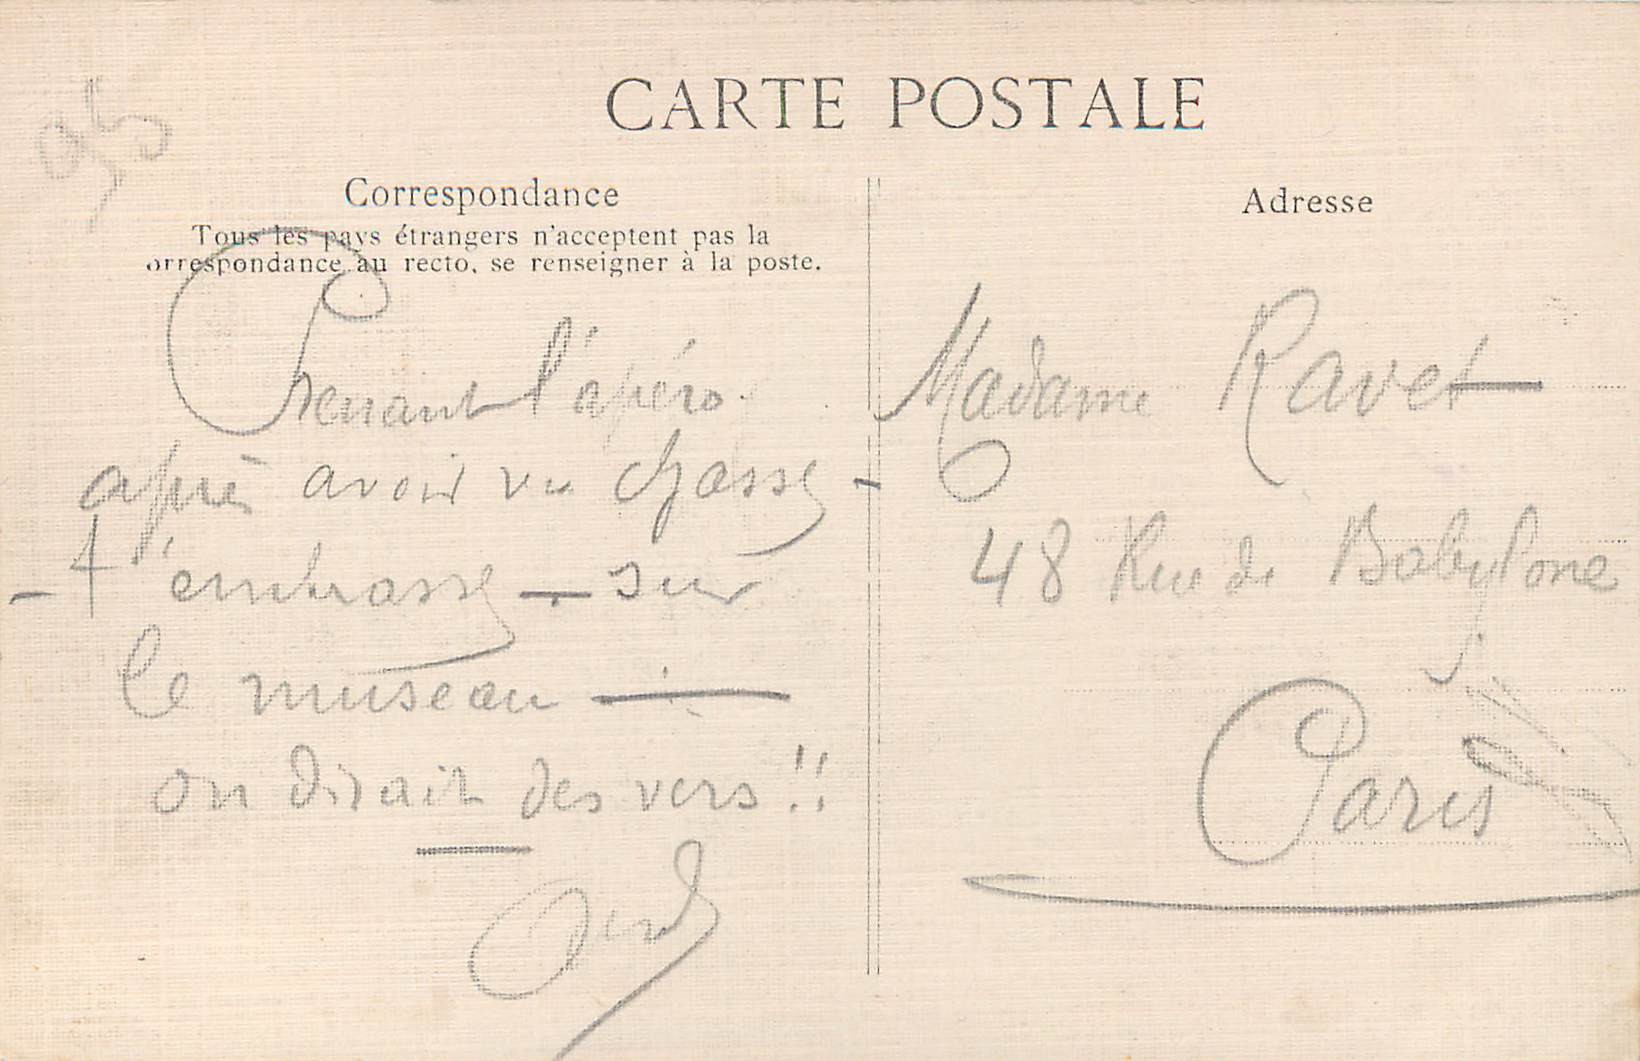 95
CARTE POSTALE
Correspondance
Tous les pays étrangers n'acceptent pas la
orrespondance au recto, se renseigner à la poste.
Prenant l'apéro
après avoir vu chasse -
- t'embrasse - sur
le museau —
on dirait des vers !!
Adresse
Madame Ravet
48 Rue de Babylone
Paris